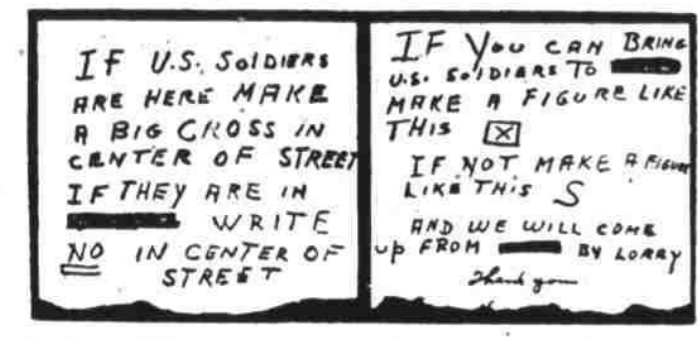 IF U.S. SOLDIERS
ARE HERE MAKE
A BIG CROSS IN
CENTER OF STREET
IF THEY ARE IN
WRITE
NO IN CENTER OF
STREET
IF YOU CAN BRING
U.S. SOLDIERS TO
MAKE A FIGURE LIKE
THIS X
IF NOT MAKE A FIGURE
LIKE THIS S
AND WE WILL COME
UP FROM BY LORRY
Thank you